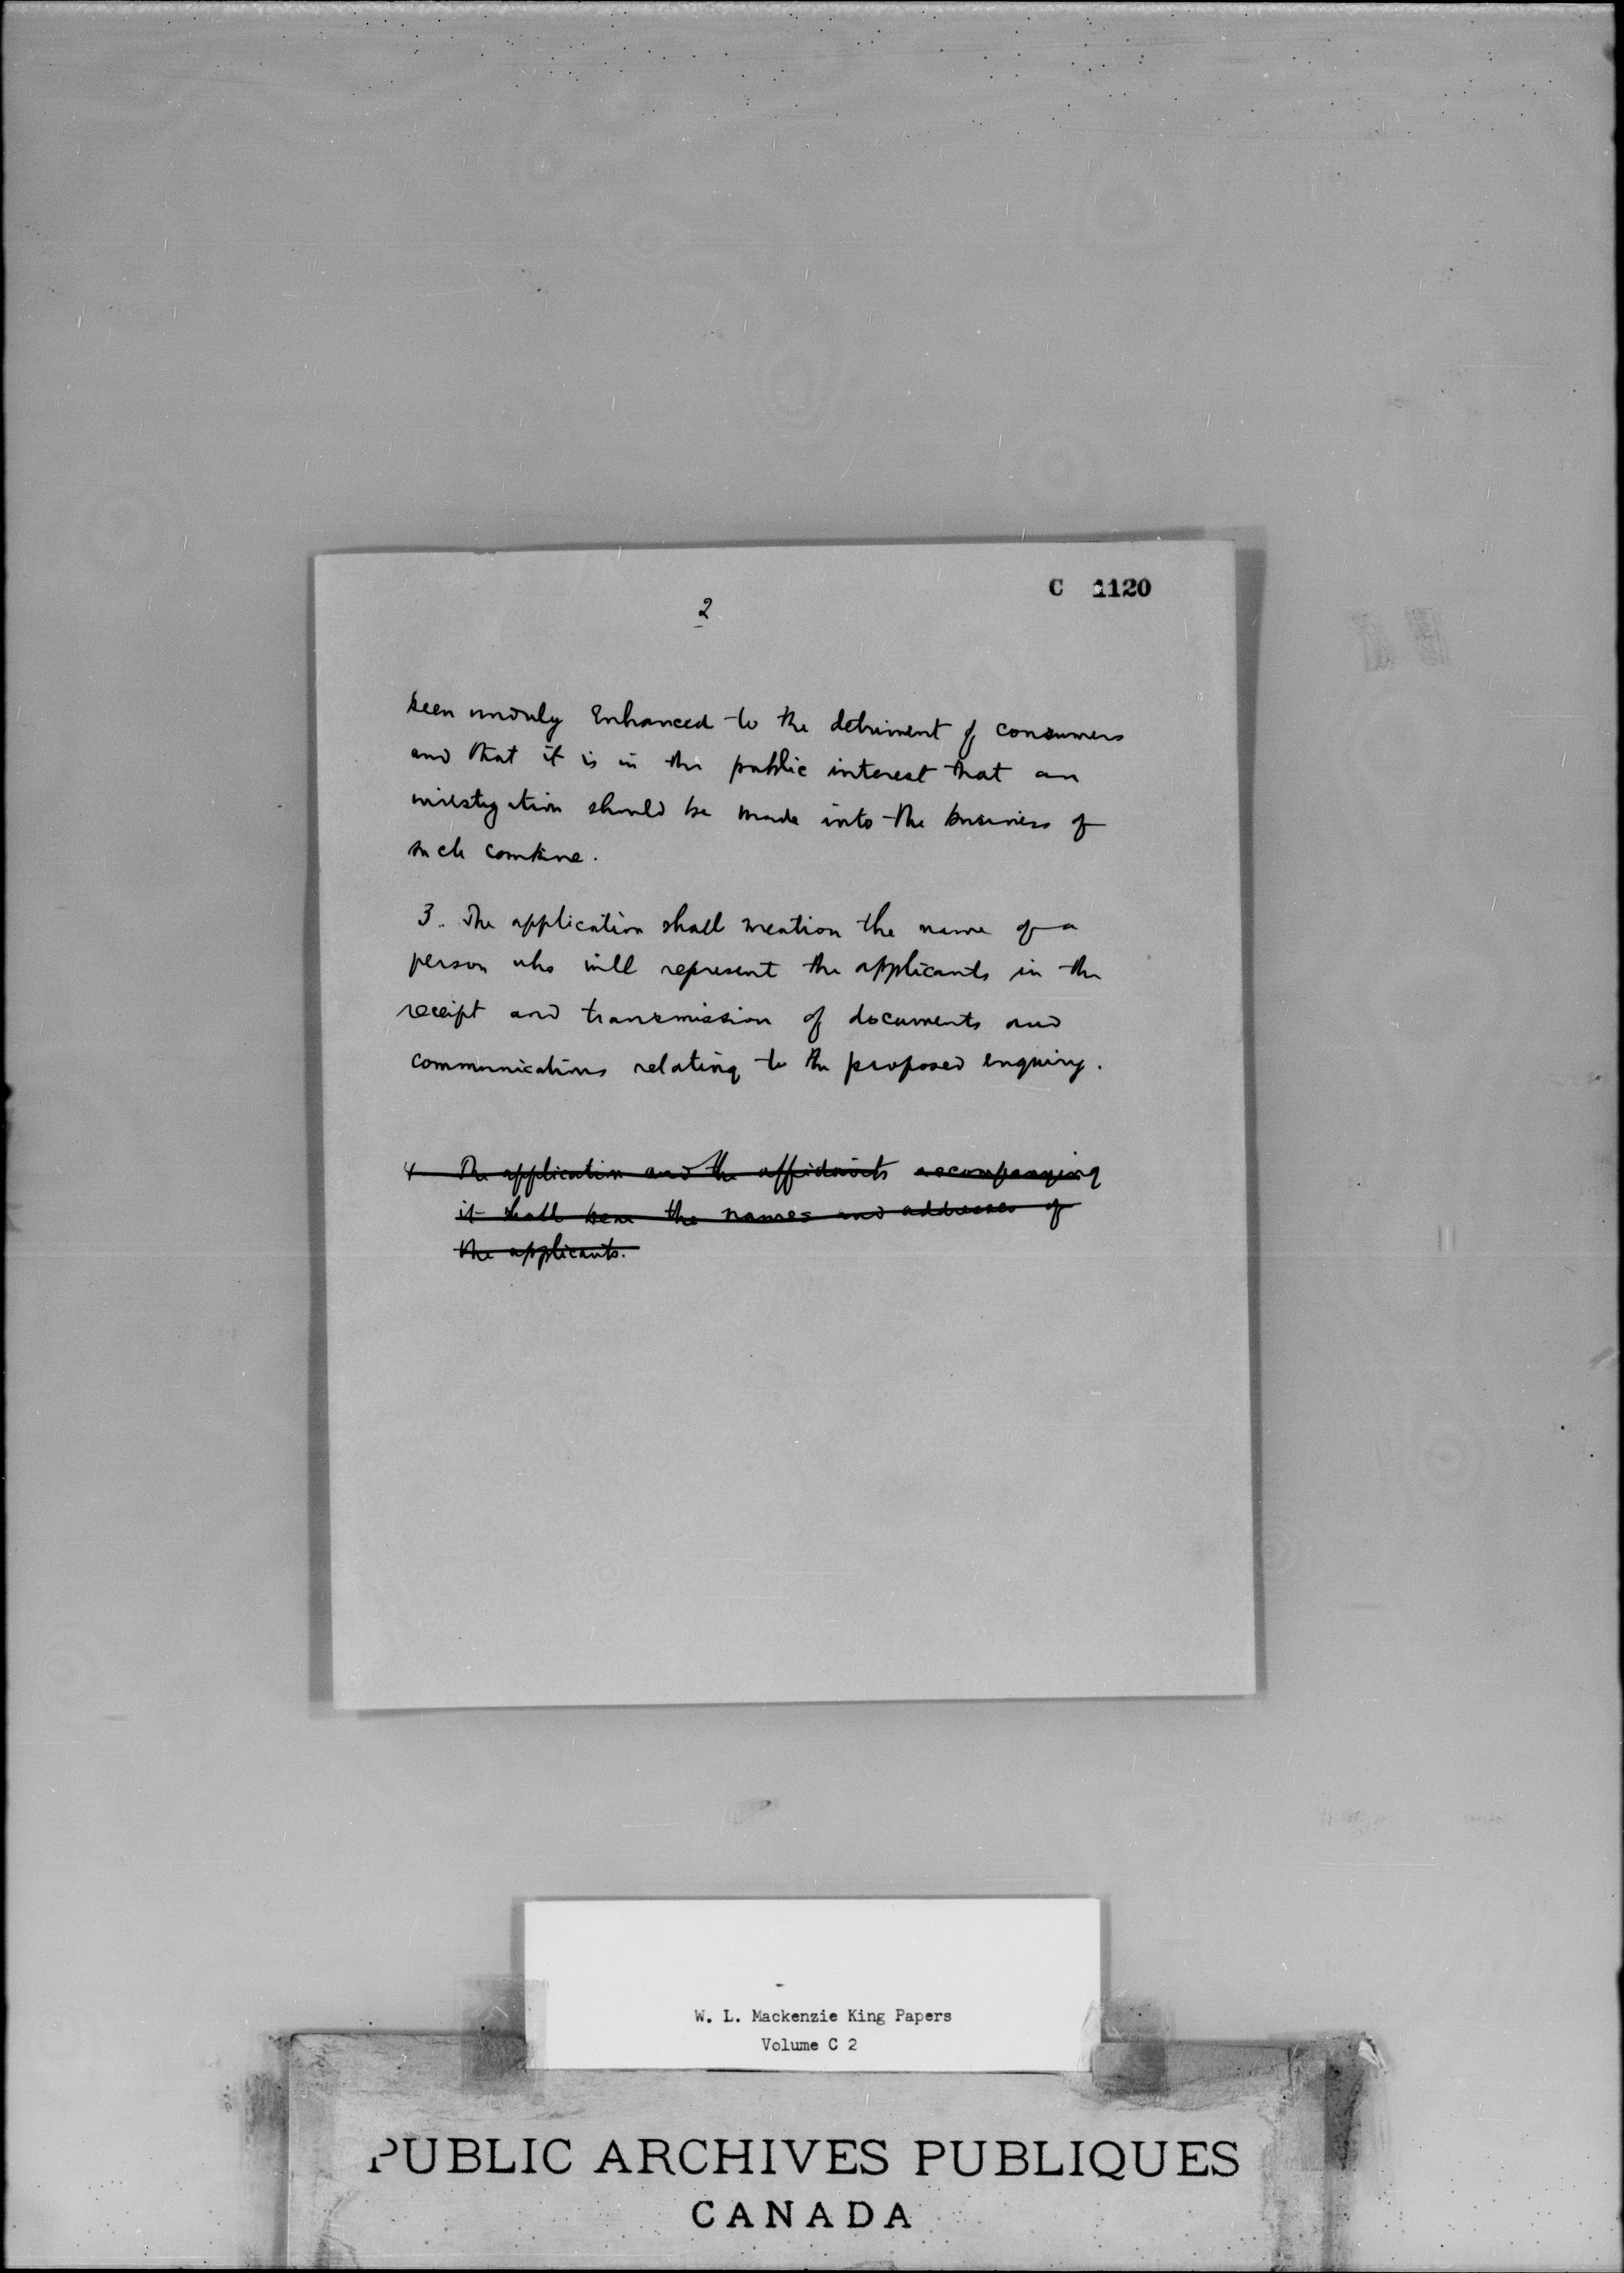 C 1120
2
been unduly enhanced to the detriment of consumers
and that it is in the public interest that an
investigation should be made into the business of
such combine.
3. The application shall mention the name of a
person who will represent the applicants in the
receipt and transmission of documents and
communications relating to the proposed enquiry.
4 The application and the affidavits accompanying
it shall bear the names and addresses of
the applicants.
W. L. Mackenzie King Papers
Volume C 2
PUBLIC ARCHIVES PUBLIQUES
CANADA